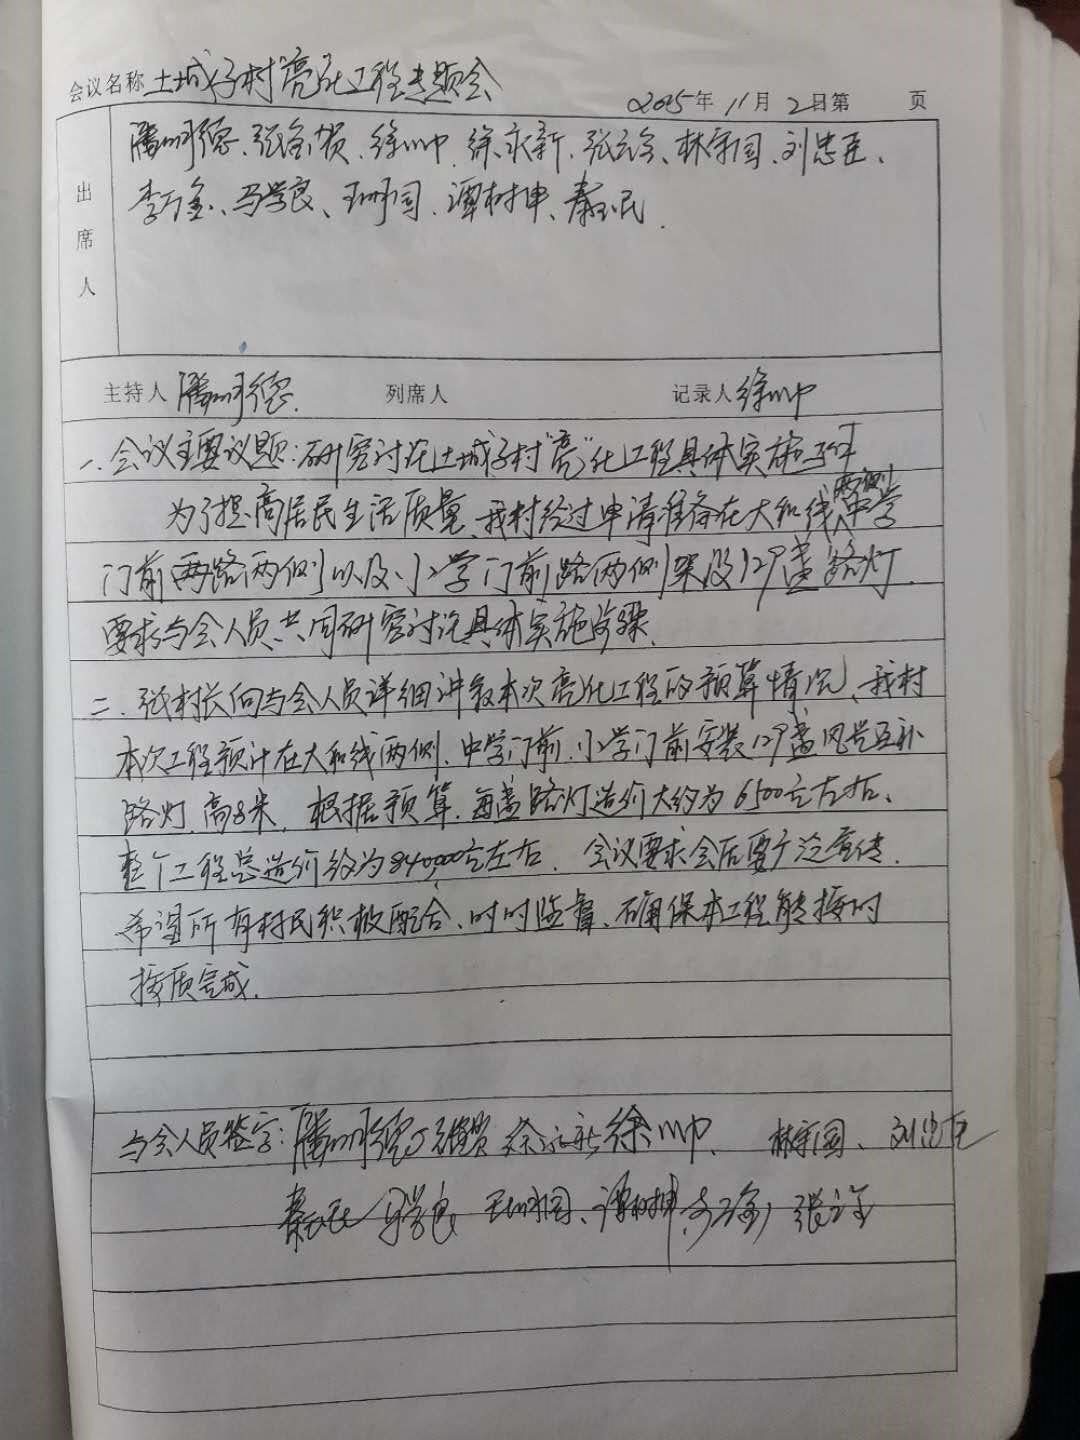 会议名称 土城子村"亮"化工程专题会
2015年 11月 2日第 页
出席人
滕明德、张金贺、徐帅、徐永新、张立全、林宝国、刘忠臣、
李万金、马学良、王明国、谭树坤、秦玉民.
主持人 滕明德. 列席人 记录人 徐帅
一、会议主要议题:研究讨论土城子村"亮"化工程具体实施
为了提高居民生活质量、我村经过申请准备在大和线两侧、中学
门前两路两侧以及小学门前路两侧架设129盏路灯.
要求与会人员共同研究讨论具体实施步骤.
二、张村长向与会人员详细讲叙本次亮化工程的预算情况、我村
本次工程预计在大和线两侧、中学门前、小学门前安装129盏风光互补
路灯,高8米,根据预算.每盏路灯造价大约为6500元左右、
整个工程总造价约为840,000元左右. 会议要求会后要广泛宣传.
希望所有村民积极配合、时时监督、确保本工程能按时
按质完成.
与会人员签字:滕明德、张金贺 徐永新 徐帅. 林宝国、刘忠臣
秦玉民 马学良 王明国、谭树坤 李万金 张立全